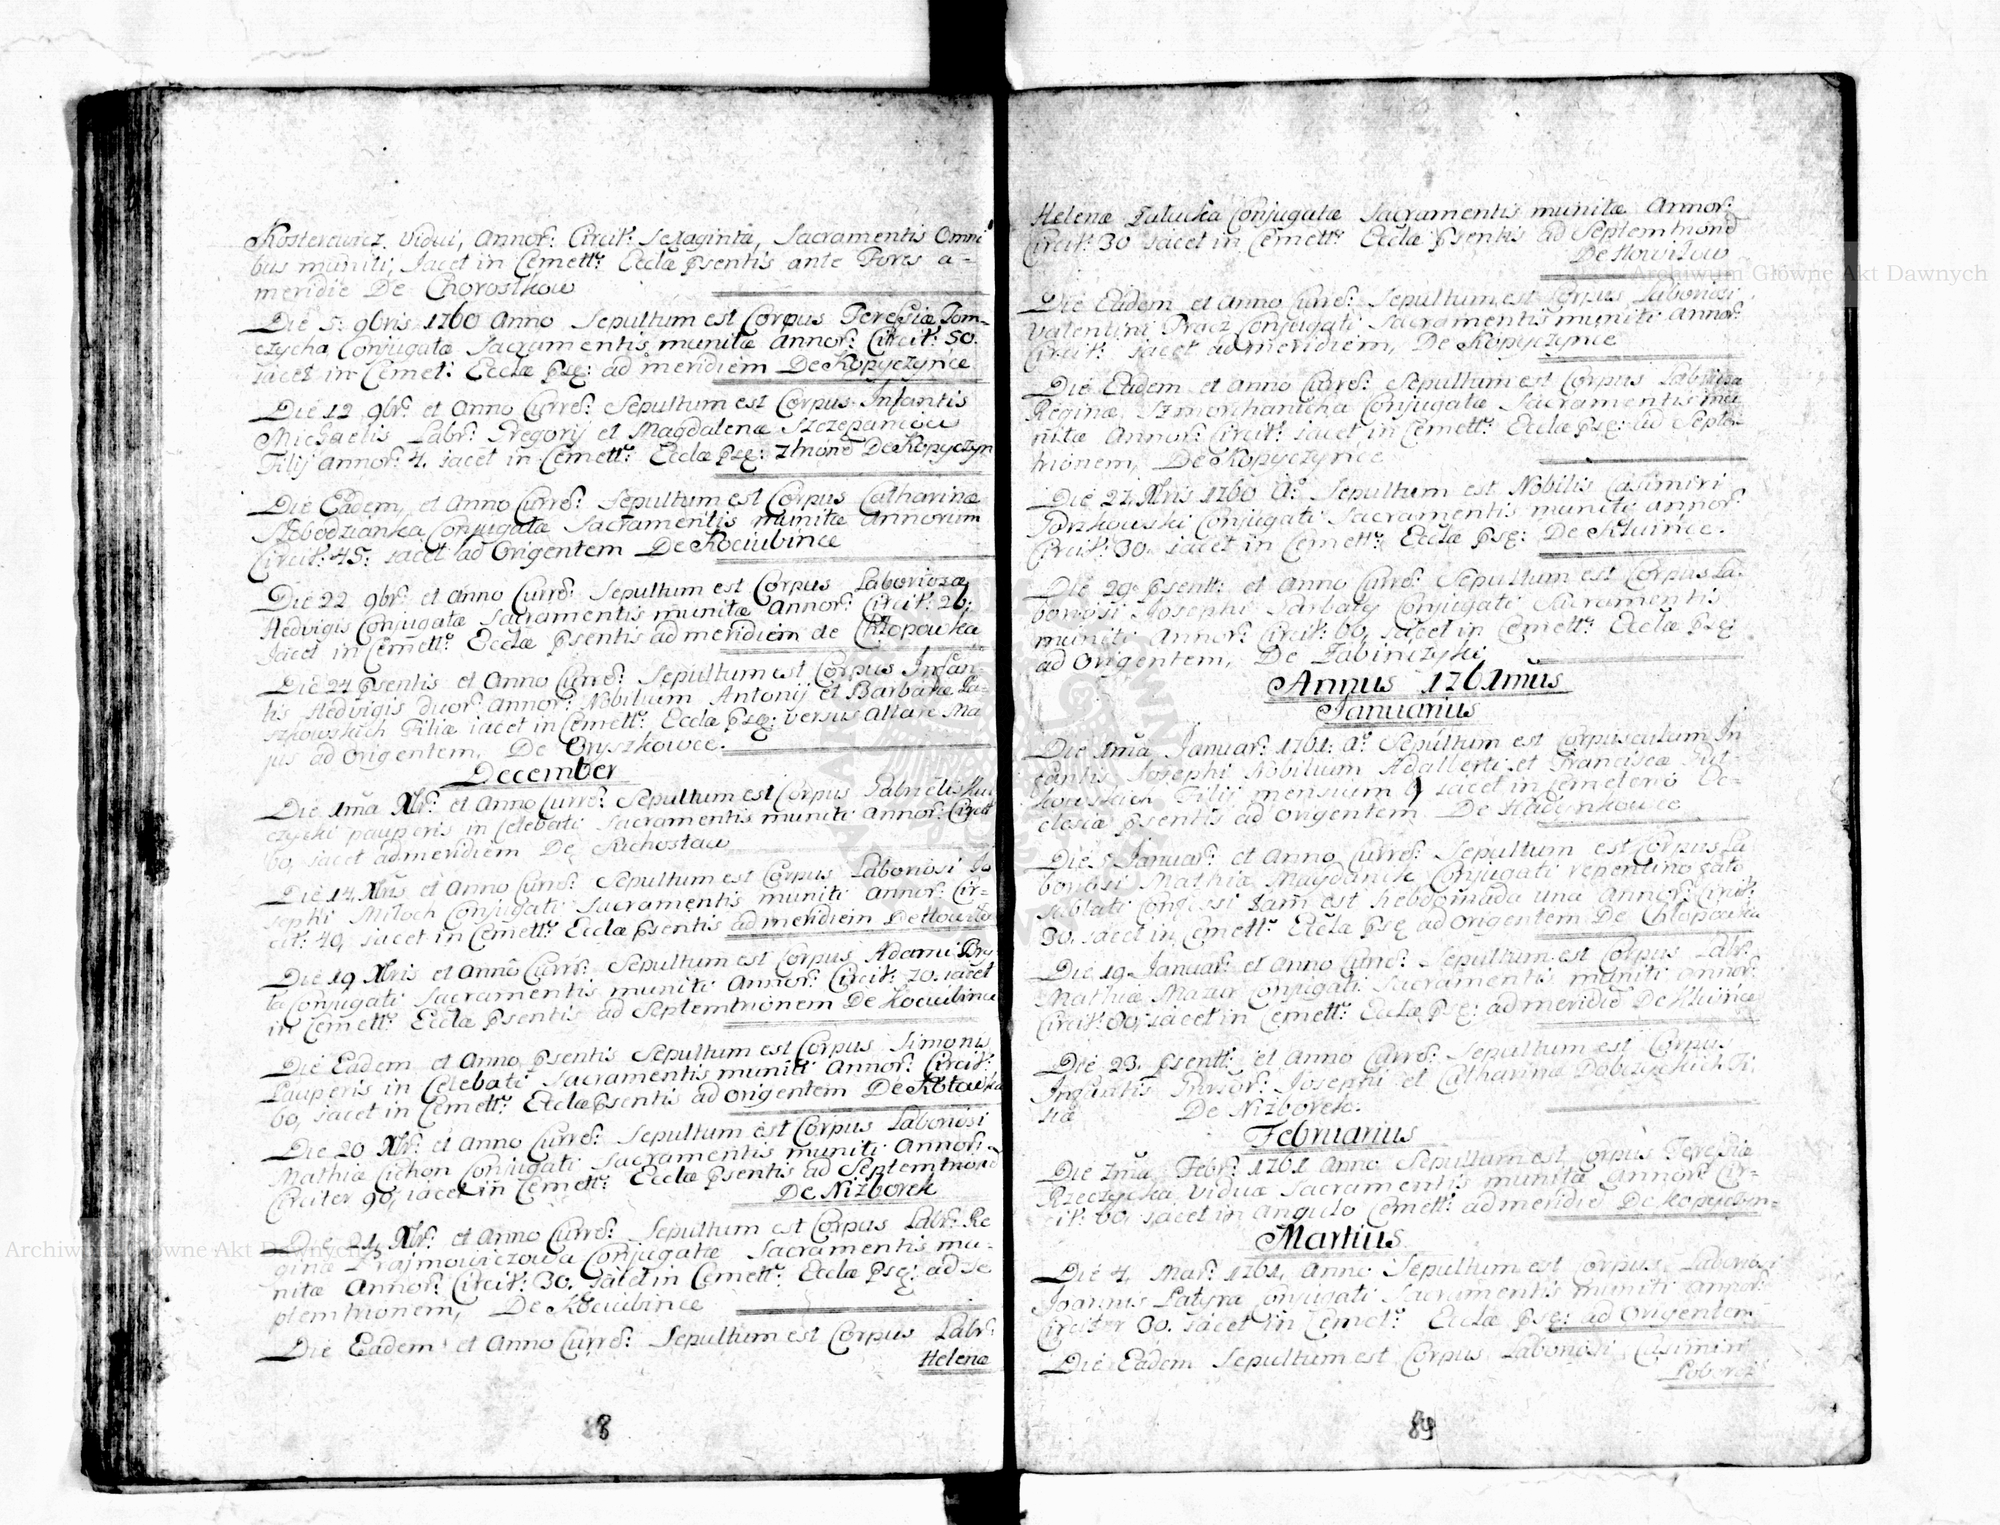 Kosterewicz Vidui, Annor: Circit: Sexaginta, Sacramentis Omni
bus muniti, Jacet in Cemett: Ecclæ Psentis ante Fores a-
meridie De Chorostkow
Die 5. 9bris 1760 Anno Sepultum est Corpus Teresiæ Tom-
czycha Conjugatæ Sacramentis munitæ Annor: Circit: 50.
iacet in Cemet: Ecclæ Pse: ad meridiem De Kopyczynce
Die 12 9br: et Anno Curre: Sepultum est Corpus Infantis
Michaelis Labr: Gregorij et Magdalenæ Szczepaniow
Filij Annor: 4. iacet in Cemett: Ecclæ Pse: 7trione De Kopyczyn
Die Eadem, et Anno Curre: Sepultum est Corpus Catharinæ
Conjugatæ Sacramentis munitæ Annorum
Circit: 45. iacet ad Origentem De Kociubince
Die 22 9br: et Anno Curre: Sepultum est Corpus Laboriosæ
Hedvigis Conjugatæ Sacramentis munitæ Annor: Circit: 26.
Jacet in Cemett: Ecclæ Psentis ad meridiem de Chłopowka
Die 24 Psentis et Anno Curre: Sepultum est Corpus Infan-
tis Hedvigis duor: Annor: Nobilium Antonij et Barbaræ Za-
Filiæ iacet in Cemett: Ecclæ Pse: versus Altare Ma
jus ad Origentem, De Oryszkowce.
December
Die 1ma Xbr: et Anno Curre: Sepultum est Corpus Gabrielis
czycki pauperis in Celebati Sacramentis muniti Annor: Circit
60, iacet ad meridiem De Suchostaw
Die 14 Xbris et Anno Curre: Sepultum est Corpus Laboriosi Jo
sephi Miloch Conjugati Sacramentis muniti Annor: Cir-
cit: 40, iacet in Cemett: Ecclæ Psentis ad meridiem De Howiłow
Die 19 Xbris et Anno Curre: Sepultum est Corpus Adami Bry
la Conjugati Sacramentis muniti Annor: Circit: 70. iacet
in Cemett: Ecclæ Psentis ad Septemtrionem De Kociubince
Die Eadem et Anno Psentis Sepultum est Corpus Simonis
Pauperis in Celebati Sacramentis muniti Annor: Circit:
60, iacet in Cemett: Ecclæ Psentis ad Origentem De Kotowka
Die 20 Xbr: et Anno Curre: Sepultum est Corpus Laboriosi
Mathiæ Cichon Conjugati Sacramentis muniti Annor:
Circiter 90, iacet in Cemett: Ecclæ Psentis ad Septemtrione
De Nizborek
Die 24 Xbr: et Anno Curre: Sepultum est Corpus Labr: Re
ginæ Conjugatæ Sacramentis mu-
nitæ Annor: Circit: 30. iacet in Cemett: Ecclæ Pse: ad Se
ptemtrionem, De Kociubince
Die Eadem et Anno Curre: Sepultum est Corpus Labr:
Helenæ
8
Helenæ Załucka Conjugatæ Sacramentis munitæ Annor:
Circit: 30 iacet in Cemett: Ecclæ Psentis ad Septemtrione
De Howiłow
Die Eadem et Anno Curre: Sepultum est Corpus Laboriosi
Valentini Pracz Conjugati Sacramentis muniti Annor:
Circit: iacet ad meridiem, De Kopyczynce
Die Eadem et Anno Curre: Sepultum est Corpus
Reginæ Conjugatæ Sacramentis mu
nitæ Annor: Circit: iacet in Cemett: Ecclæ Pse: ad Septem
trionem, De Kopyczynce
Die 27 Xbris 1760 Ao Sepultum est Nobilis Casimiri
Gorzkowski Conjugati Sacramentis muniti Annor
Circit: 30. iacet in Cemett: Ecclæ Pse: De Kluince.
Die 29. Psentt: et Anno Curre: Sepultum est Corpus La-
boriosi Josephi Conjugati Sacramentis
muniti Annor: Circit: 60, iacet in Cemett: Ecclæ Pse:
ad Origentem, De Zabinczyki
Annus 1761mus
Januarius
Die 1ma Januar: 1761. Ao Sepultum est Corpusculum In
fantis Josephi Nobilium Adalberti et Franciscæ Rut-
kowskich Filij mensium 9 iacet in Cemeterio Ec-
clesiæ Psentis ad Origentem De Hadynkowce
Die 5 Januar: et Anno Curre: Sepultum est Corpus La
boriosi Mathiæ Conjugati repentino fato
sublati Confessi iam est hebdomada una Annor: Circit:
30. iacet in Cemett: Ecclæ Pse ad Origentem De Chłopowka
Die 19 Januar: et Anno Curre: Sepultum est Corpus Labr:
Mathiæ Mazur Conjugati Sacramentis muniti Annor:
Circit: iacet in Cemett: Ecclæ Pse: ad meridie De Kluince
Die 23. Psentt: et Anno Curre: Sepultum est Corpus
Infantis Josephi et Catharinæ Dobrzyckich Fi
liæ De Nizborek.
Februarius
Die 7ma Febr: 1761 Anno Sepultum est Corpus Teresiæ
Rzeczycka, Viduæ Sacramentis munita Annor: Cir-
cit: 60, iacet in Angulo Cemett: ad meridie De Kopyczyn-
Martius
Die 4. Mar: 1761. Anno Sepultum est Corpus Laboriosi
Joannis Łatyra Conjugati Sacramentis muniti Annor:
Circiter 30. iacet in Cemet: Ecclæ Pse: ad Origentem
Die Eadem Sepultum est Corpus Laboriosi Casimiri
89
Archiwum Główne Akt Dawnych
Archiwum Główne Akt Dawnych